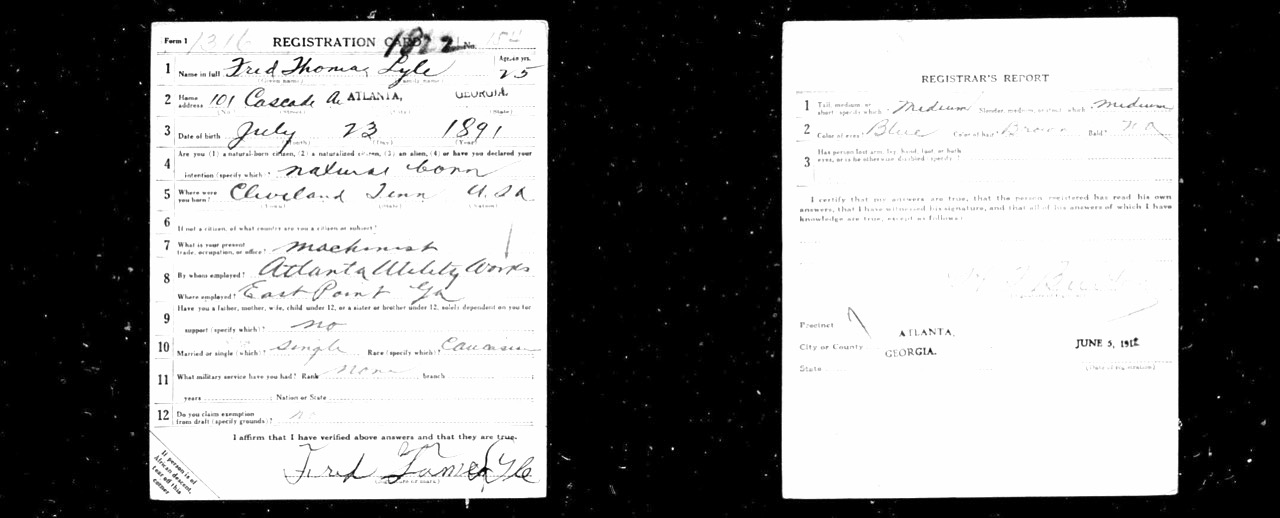 Form 1 1316 REGISTRATION CARD 1822 No. 154
1 Name in full Fred Thomas Lyle Age, in yrs. 25
(Given name) (Family name)
2 Home address 101 Cascade A ATLANTA, GEORGIA.
(No.) (Street) (City) (State)
3 Date of birth July 23 1891
(Month) (Day) (Year)
Are you (1) a natural-born citizen, (2) a naturalized citizen, (3) an alien, (4) or have you declared your
4 intention (specify which)? natural born
5 Where were you born? Cleveland Tenn U.S.A
(Town) (State) (Nation)
6 If not a citizen, of what country are you a citizen or subject?
7 What is your present trade, occupation, or office? machinist
8 By whom employed? Atlanta Utility Works
Where employed? East Point Ga
9 Have you a father, mother, wife, child under 12, or a sister or brother under 12, solely dependent on you for
support (specify which)? no
10 Married or single (which)? Single Race (specify which)? Caucasian
11 What military service have you had? Rank None branch
years Nation or State
12 Do you claim exemption from draft (specify grounds)? no
I affirm that I have verified above answers and that they are true.
Fred Lyle
(Signature or mark)
If person is of
African descent,
tear off this
corner
REGISTRAR'S REPORT
1 Tall, medium, or short (specify which)? Medium Slender, medium, or stout (which)? medium
2 Color of eyes? Blue Color of hair? Brown Bald? No
3 Has person lost arm, leg, hand, foot, or both
eyes, or is he otherwise disabled (specify)?
I certify that my answers are true, that the person registered has read his own
answers, that I have witnessed his signature, and that all of his answers of which I have
knowledge are true, except as follows:
Precinct 7
City or County ATLANTA,
GEORGIA.
State
JUNE 5, 191
(Date of registration)